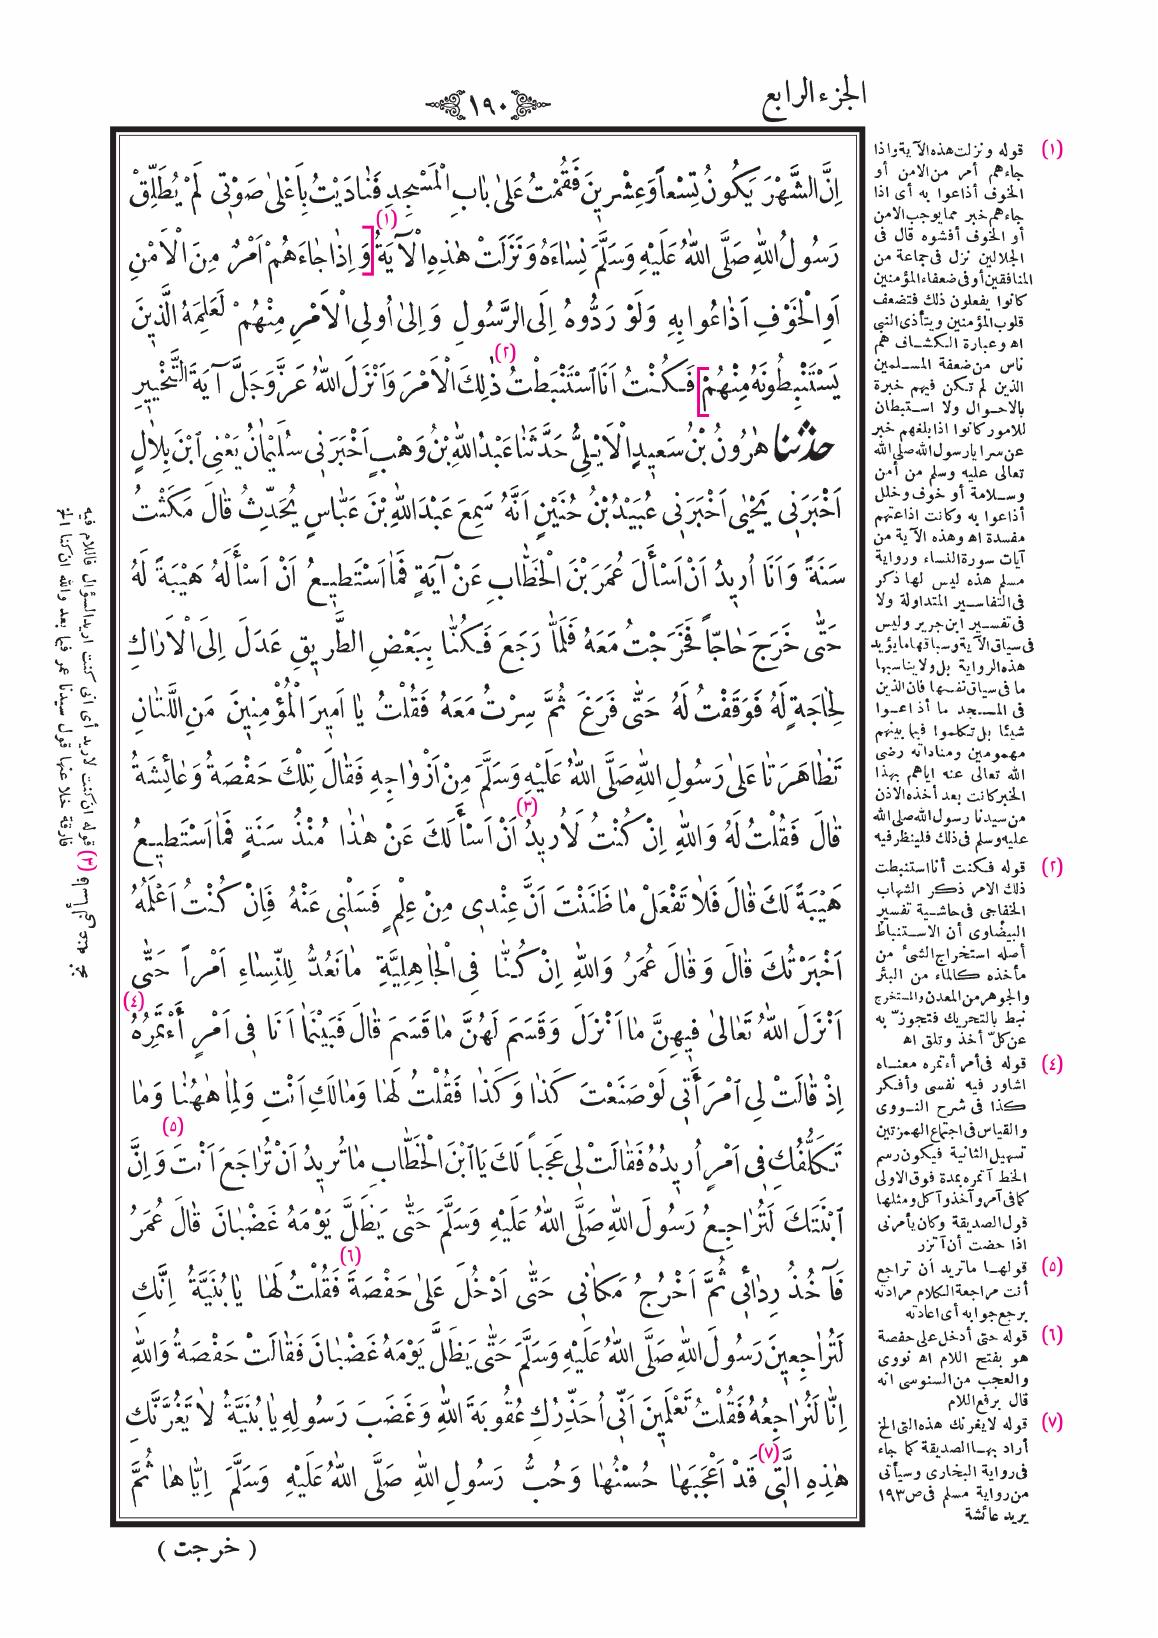 الجزء الرابع
١٩٠
اِنَّ الشَّهْرَ يَكُونُ تِسْعاً وَعِشْرِينَ فَقُمْتُ عَلىٰ بٰابِ الْمَسْجِدِ فَنٰادَيْتُ بِاَعْلىٰ صَوْتِى لَمْ يُطَلِّقْ
رَسُولُ اللّٰهِ صَلَّى اللّٰهُ عَلَيْهِ وَسَلَّمَ نِسٰاءَهُ وَنَزَلَتْ هٰذِهِ الْآيَةُ (١) [وَ اِذٰا جٰاءَهُمْ اَمْرٌ مِنَ الْاَمْنِ
اَوِ الْخَوْفِ اَذٰاعُوا بِهِ وَلَوْ رَدُّوهُ اِلَى الرَّسُولِ وَ اِلىٰ اُولِى الْاَمْرِ مِنْهُمْ لَعَلِمَهُ الَّذِينَ
يَسْتَنْبِطُونَهُ مِنْهُمْ] فَكُنْتُ اَنَا ٱسْتَنْبَطْتُ (٢) ذٰلِكَ الْاَمْرَ وَاَنْزَلَ اللّٰهُ عَزَّ وَجَلَّ آيَةَ التَّخْيِيرِ
حدثنا هٰرُونُ بْنُ سَعِيدٍ الْاَيْلِىُّ حَدَّثَنٰا عَبْدُ اللّٰهِ بْنُ وَهْبٍ اَخْبَرَنِى سُلَيْمٰانُ يَعْنِى ٱبْنَ بِلٰالٍ
اَخْبَرَنِى يَحْيىٰ اَخْبَرَنِى عُبَيْدُ بْنُ حُنَيْنٍ اَنَّهُ سَمِعَ عَبْدَ اللّٰهِ بْنَ عَبّٰاسٍ يُحَدِّثُ قٰالَ مَكَثْتُ
سَنَةً وَ اَنَا اُرِيدُ اَنْ اَسْأَلَ عُمَرَ بْنَ الْخَطّٰابِ عَنْ آيَةٍ فَمٰا اَسْتَطِيعُ اَنْ اَسْأَلَهُ هَيْبَةً لَهُ
حَتّٰى خَرَجَ حٰاجّاً فَخَرَجْتُ مَعَهُ فَلَمّٰا رَجَعَ فَكُنّٰا بِبَعْضِ الطَّرِيقِ عَدَلَ اِلَى الْاَرٰاكِ
لِحٰاجَةٍ لَهُ فَوَقَفْتُ لَهُ حَتّٰى فَرَغَ ثُمَّ سِرْتُ مَعَهُ فَقُلْتُ يٰا اَمِيرَ الْمُؤْمِنِينَ مَنِ اللَّتٰانِ
تَظٰاهَرَتٰا عَلىٰ رَسُولِ اللّٰهِ صَلَّى اللّٰهُ عَلَيْهِ وَسَلَّمَ مِنْ اَزْوٰاجِهِ فَقٰالَ تِلْكَ حَفْصَةُ وَعٰائِشَةُ
قٰالَ فَقُلْتُ لَهُ وَاللّٰهِ اِنْ كُنْتُ لَاُرِيدُ (٣) اَنْ اَسْأَلَكَ عَنْ هٰذٰا مُنْذُ سَنَةٍ فَمٰا اَسْتَطِيعُ
هَيْبَةً لَكَ قٰالَ فَلٰا تَفْعَلْ مٰا ظَنَنْتَ اَنَّ عِنْدِى مِنْ عِلْمٍ فَسَلْنِى عَنْهُ فَاِنْ كُنْتُ اَعْلَمُهُ
اَخْبَرْتُكَ قٰالَ وَ قٰالَ عُمَرُ وَاللّٰهِ اِنْ كُنّٰا فِى الْجٰاهِلِيَّةِ مٰا نَعُدُّ لِلنِّسٰاءِ اَمْراً حَتّٰى
اَنْزَلَ اللّٰهُ تَعٰالىٰ فِيهِنَّ مٰا اَنْزَلَ وَقَسَمَ لَهُنَّ مٰا قَسَمَ قٰالَ فَبَيْنَمٰا اَنَا فِى اَمْرٍ أَءْتَمِرُهُ (٤)
اِذْ قٰالَتْ لِى ٱمْرَأَتِى لَوْ صَنَعْتَ كَذٰا وَ كَذٰا فَقُلْتُ لَهٰا وَمٰالَكِ اَنْتِ وَلِمٰا هٰهُنٰا وَمٰا
تَكَلُّفُكِ فِى اَمْرٍ اُرِيدُهُ فَقٰالَتْ لِى عَجَباً لَكَ يَا ٱبْنَ الْخَطّٰابِ مٰا تُرِيدُ (٥) اَنْ تُرٰاجَعَ اَنْتَ وَ اِنَّ
ٱبْنَتَكَ لَتُرٰاجِعُ رَسُولَ اللّٰهِ صَلَّى اللّٰهُ عَلَيْهِ وَسَلَّمَ حَتّٰى يَظَلَّ يَوْمَهُ غَضْبٰانَ قٰالَ عُمَرُ
فَآخُذُ رِدٰائِى ثُمَّ اَخْرُجُ مَكٰانِى حَتّٰى اَدْخُلَ عَلىٰ حَفْصَةَ (٦) فَقُلْتُ لَهٰا يٰا بُنَيَّةُ اِنَّكِ
لَتُرٰاجِعِينَ رَسُولَ اللّٰهِ صَلَّى اللّٰهُ عَلَيْهِ وَسَلَّمَ حَتّٰى يَظَلَّ يَوْمَهُ غَضْبٰانَ فَقٰالَتْ حَفْصَةُ وَاللّٰهِ
اِنّٰا لَنُرٰاجِعُهُ فَقُلْتُ تَعْلَمِينَ اَنِّى اُحَذِّرُكِ عُقُوبَةَ اللّٰهِ وَغَضَبَ رَسُولِهِ يٰا بُنَيَّةُ لٰا تَغُرَّنَّكِ
هٰذِهِ الَّتِى (٧) قَدْ اَعْجَبَهٰا حُسْنُهٰا وَحُبُّ رَسُولِ اللّٰهِ صَلَّى اللّٰهُ عَلَيْهِ وَسَلَّمَ اِيّٰاهٰا ثُمَّ
( خرجت )
(١) قوله ونزلت هذه الآية واذا
جاءهم أمر من الامن أو
الخوف أذاعوا به أى اذا
جاءهم خبر مما يوجب الامن
أو الخوف أفشوه قال فى
الجلالين نزل فى جماعة من
المنافقين أو فى ضعفاء المؤمنين
كانوا يفعلون ذلك فتضعف
قلوب المؤمنين ويتأذى النبى
اه وعبارة الكشاف هم
ناس من ضعفة المسلمين
الذين لم تكن فيهم خبرة
بالاحوال ولا استبطان
للامور كانوا اذا بلغهم خبر
عن سرايا رسول الله صلى الله
تعالى عليه وسلم من أمن
وسلامة أو خوف وخلل
أذاعوا به وكانت اذاعتهم
مفسدة اه وهذه الآية من
آيات سورة النساء ورواية
مسلم هذه ليس لها ذكر
فى التفاسير المتداولة ولا
فى تفسير ابن جرير وليس
فى سياق الآية وسباقها ما يؤيد
هذه الرواية بل ولا يناسبها
ما فى سياق نفسها فان الذين
فى المسجد ما أذاعوا
شيئا بل تكلموا فيما بينهم
مهمومين ومناداته رضى
الله تعالى عنه اياهم بهذا
الخبر كانت بعد أخذه الاذن
من سيدنا رسول الله صلى الله
عليه وسلم فى ذلك فلينظر فيه
(٢) قوله فكنت أنا استنبطت
ذلك الامر ذكر الشهاب
الخفاجى فى حاشية تفسير
البيضاوى أن الاستنباط
أصله استخراج الشىء من
مأخذه كالماء من البئر
والجوهر من المعدن والمستخرج
نبط بالتحريك فتجوز به
عن كلّ أخذ وتلق اه
(٤) قوله فى أمر أءتمره معناه
اشاور فيه نفسى وأفكر
كذا فى شرح النووى
والقياس فى اجتماع الهمزتين
تسهيل الثانية فيكون رسم
الخط آتمره بمدة فوق الاولى
كما فى آمر وآخذ وآكل ومثلها
قول الصديقة وكان يأمرنى
اذا حضت أن آتزر
(٥) قولها ما تريد أن تراجع
أنت مراجعة الكلام مرادته
يرجع جوابه أى اعادته
(٦) قوله حتى أدخل على حفصة
هو بفتح اللام اه نووى
والعجب من السنوسى انه
قال برفع اللام
(٧) قوله لا يغرنك هذه التى الخ
أراد بها الصديقة كما جاء
فى رواية البخارى وسيأتى
من رواية مسلم فى ص ١٩٣
يريد عائشة
(٣) قوله ان كنت لاريد أى انى كنت اريد السؤال فاللام فيه
فارقة خلا عنها قول سيدنا عمر فيما بعد والله ان كنا الخ